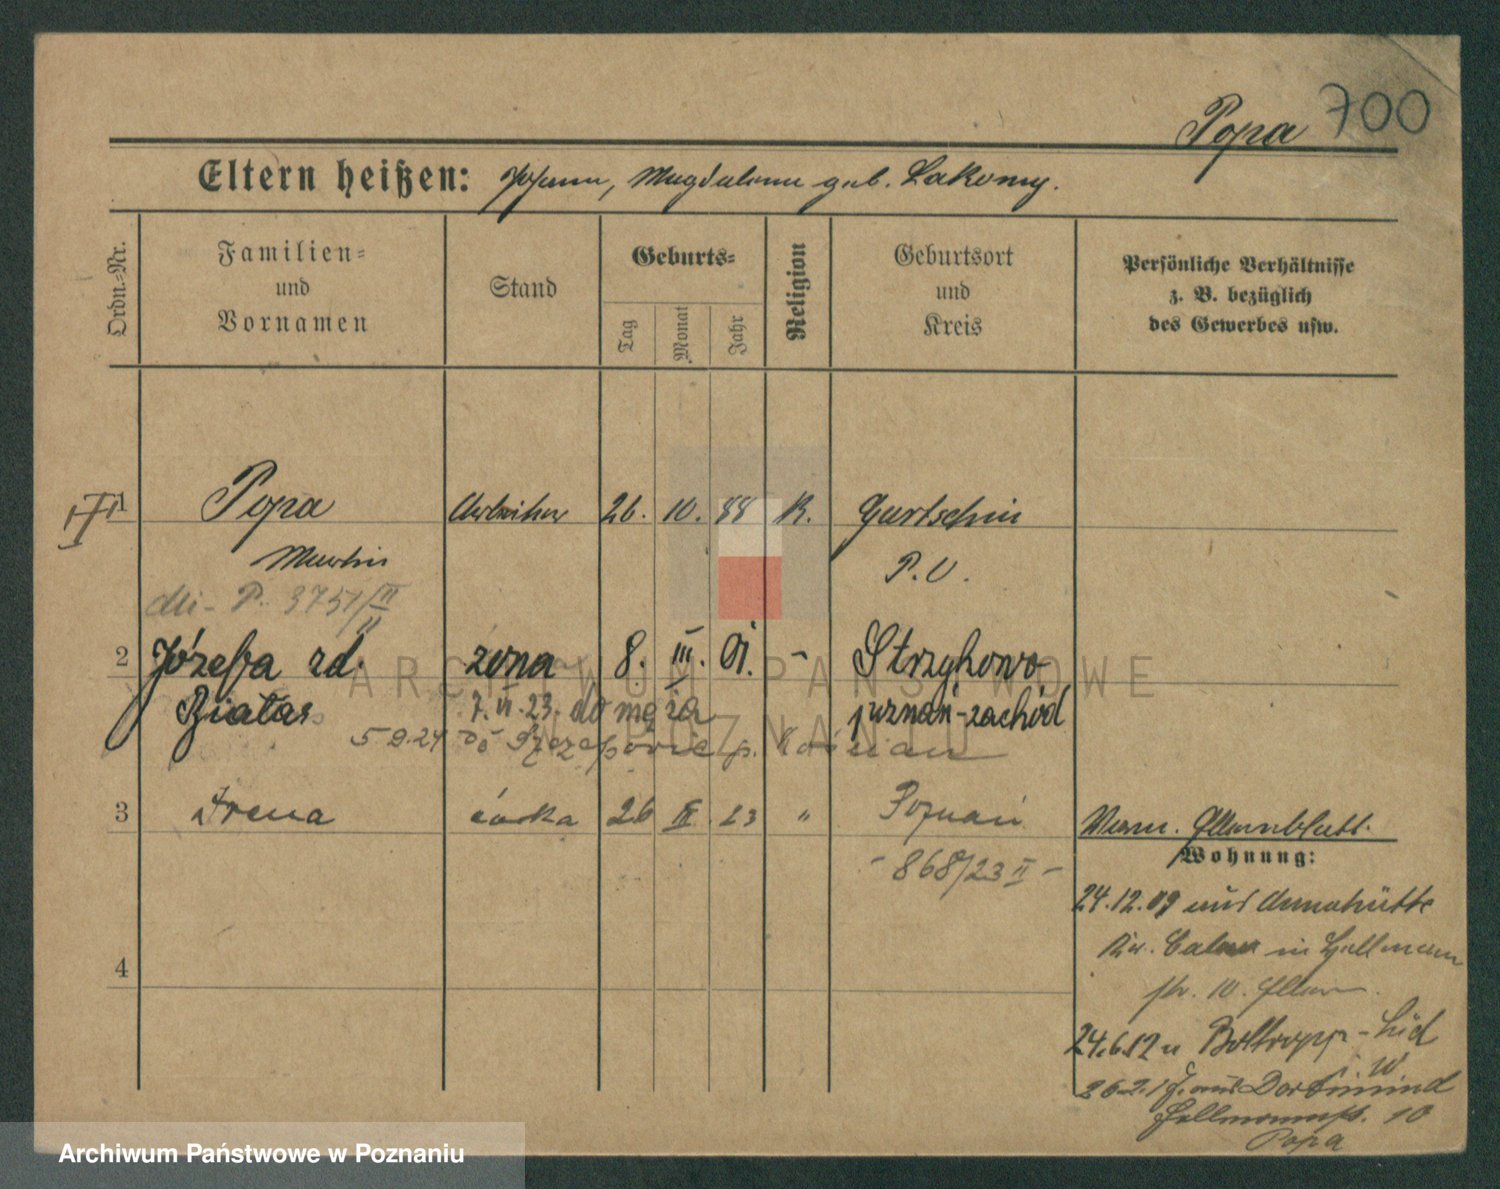 Popa 700
Eltern heißen: Johann, Magdalena geb. Lakomy.
Ordn.-Nr.
Familien-
und
Vornamen
Stand
Geburts-
Tag
Monat
Jahr
Religion
Geburtsort
und
Kreis
Persönliche Verhältnisse
z. B. bezüglich
des Gewerbes usw.
1 Popa Arbeiter 26. 10. 88 K. Gurtschin
Martin P. O.
P. 3751/II
2 Józefa zd. żona 8. III. 01. - Strzyżowo
Białas 7. VI. 23. do męża poznań-zachód
5 9.24 do p.
3 Irena córka 26 23 " Poznań
Verm. Elternblatt.
- 868/23 II -
Wohnung:
24.12.09 aus Annahütte
Kr. Calau in Hellmann
str. 10. Eltern.
4
24.6.12 n Bottropp-Süd
i. W
aus Dortmund
Hellmannstr. 10
Popa
ARCHIWUM PAŃSTWOWE
W POZNANIU
Archiwum Państwowe w Poznaniu